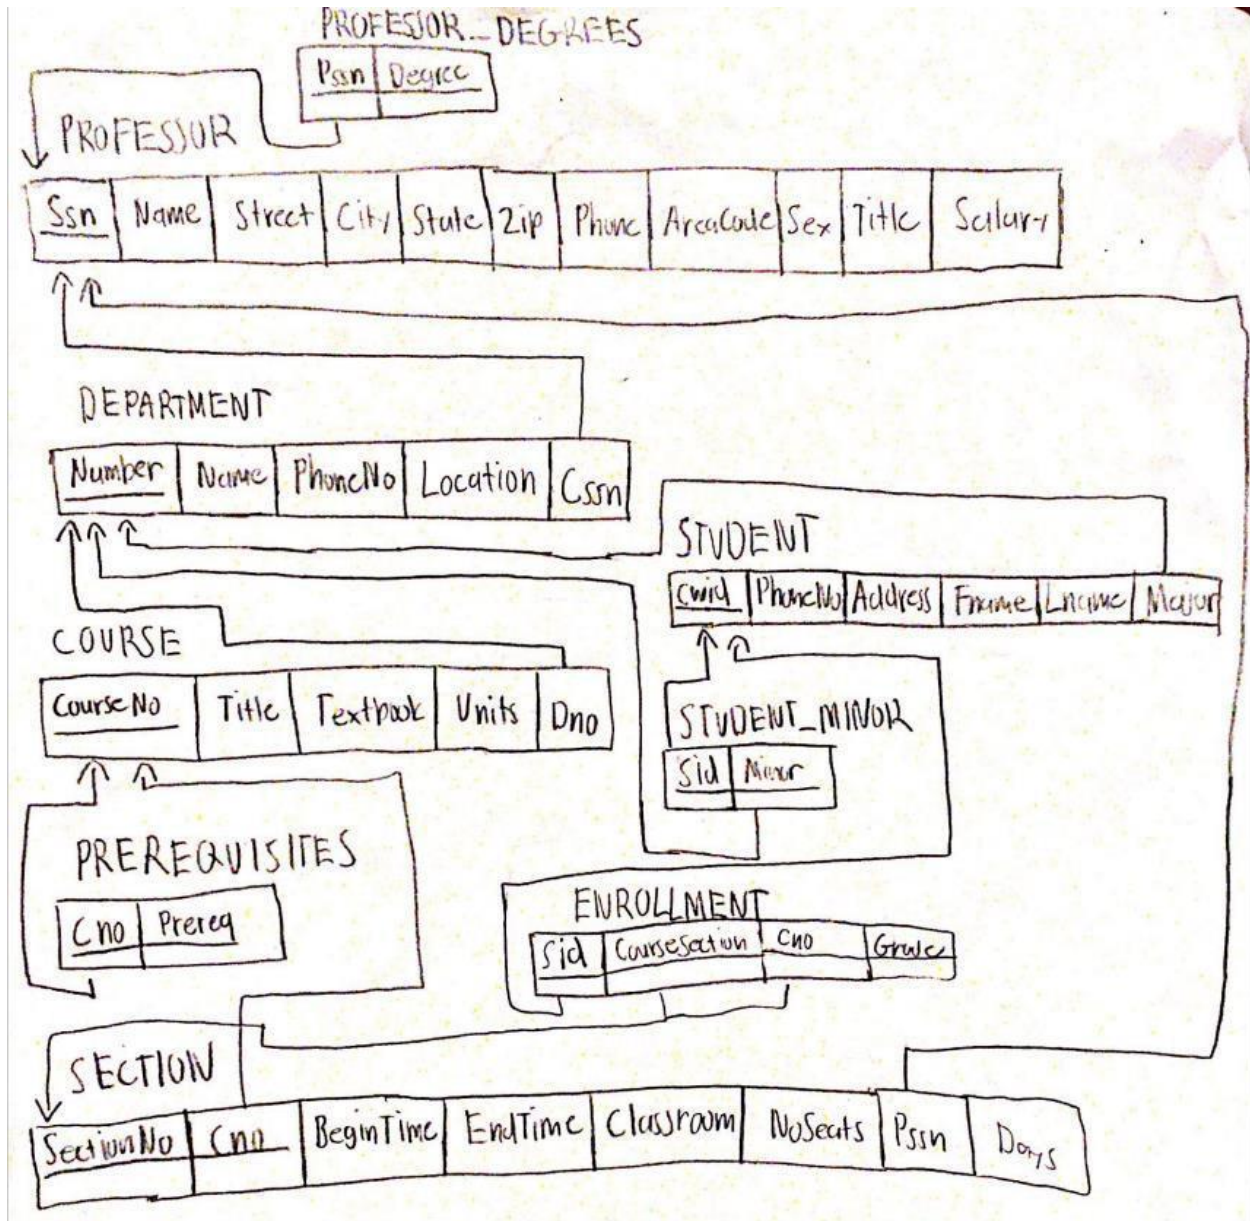 PROFESSOR_DEGREES
Pssn Degree
PROFESSOR
Ssn Name Street City State Zip Phone AreaCode Sex Title Salary
DEPARTMENT
Number Name PhoneNo Location Cssn
STUDENT
cwid PhoneNo Address Fname Lname Major
COURSE
CourseNo Title Textbook Units Dno
STUDENT_MINOR
Sid Minor
PREREQUISITES
Cno Prereq
ENROLLMENT
Sid CourseSection Cno Grade
SECTION
SectionNo Cno BeginTime EndTime Classroom NoSeats Pssn Days